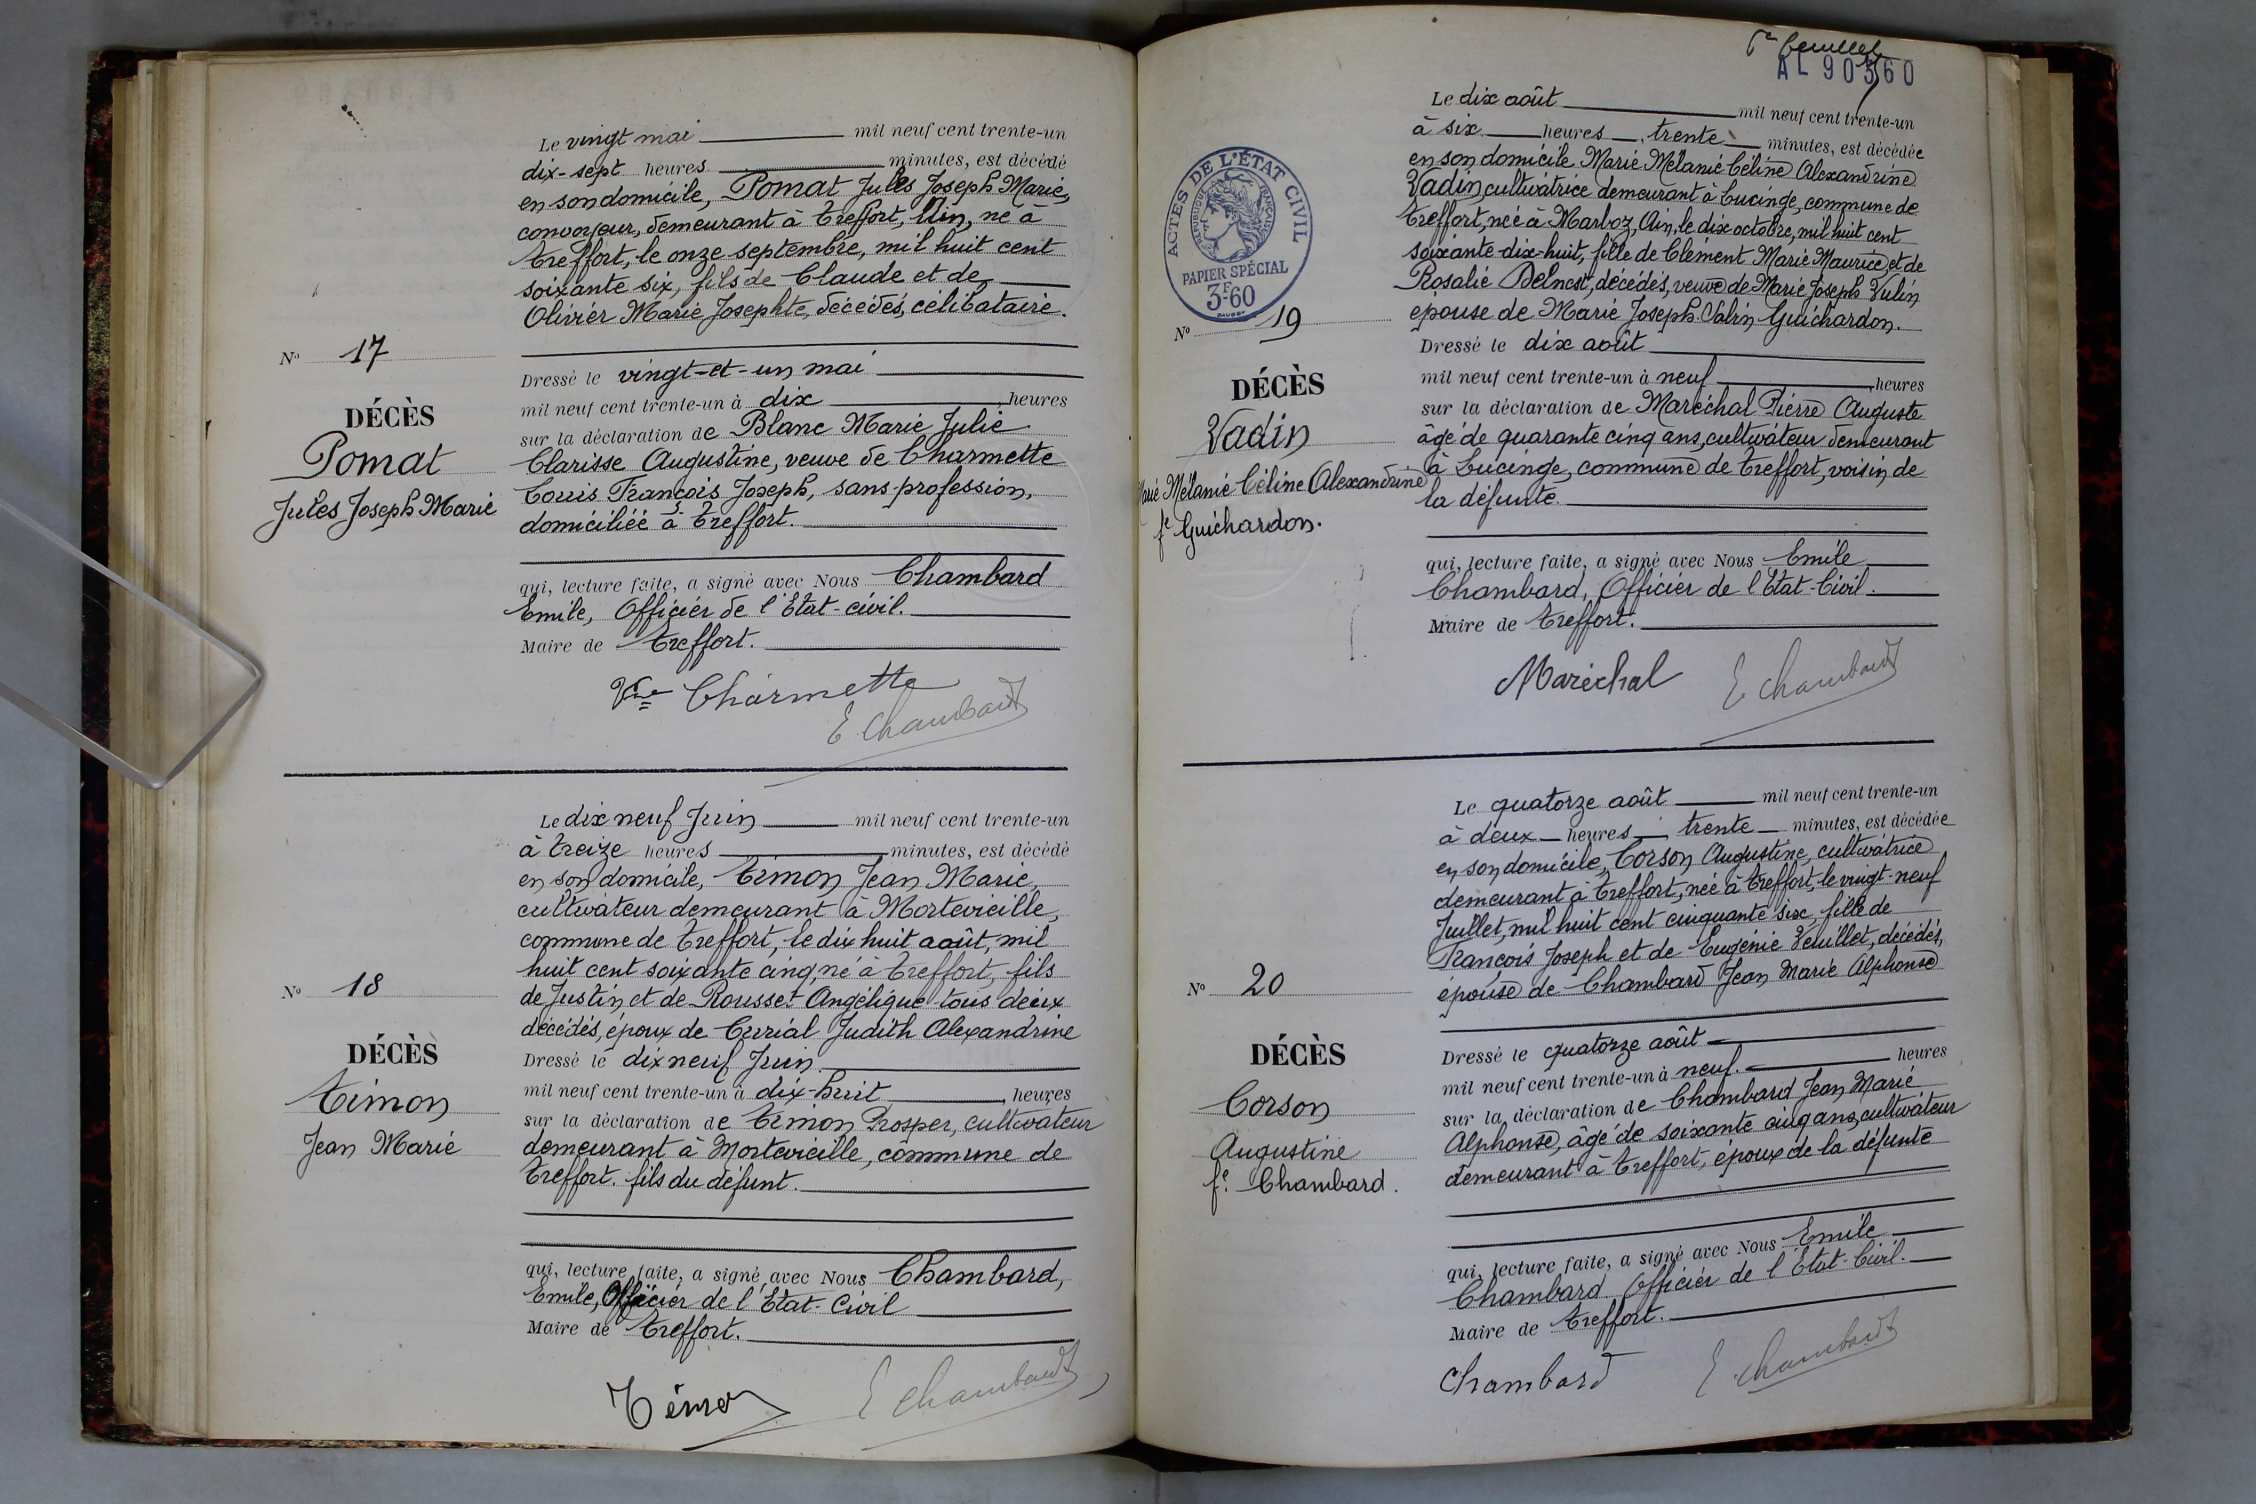 Le vingt mai mil neuf cent trente-un
dix-sept heures minutes, est décédé
en son domicile, Pomat Jules Joseph Marie,
convoyeur, demeurant à Treffort, Ain, né à
Treffort, le onze septembre, mil huit cent
soixante six, fils de Claude et de
Olivier Marie Josephte, décédés, célibataire.
N° 17
Dressé le vingt-et-un mai
mil neuf cent trente-un à dix heures
DÉCÈS
sur la déclaration de Blanc Marie Julie
Pomat
Clarisse Augustine, veuve de Charmette
Jules Joseph Marie
Louis François Joseph, sans profession,
domiciliée à Treffort.
qui, lecture faite, a signé avec Nous Chambard
Emile, Officier de l'Etat-civil.
Maire de Treffort.
Vve Charmette
E Chambard
Le dix neuf Juin mil neuf cent trente-un
à treize heures minutes, est décédé
en son domicile, Témon Jean Marie,
cultivateur demeurant à Mortevieille,
commune de Treffort, le dix huit août, mil
huit cent soixante cinq, né à Treffort, fils
de Justin et de Rousset Angélique tous deux
décédés, époux de Curial Judith Alexandrine
N° 18
DÉCÈS
Témon
Jean Marie
Dressé le dix neuf Juin
mil neuf cent trente-un à dix-huit heures
sur la déclaration de Témon Prosper, cultivateur
demeurant à Mortevieille, commune de
Treffort. fils du défunt.
qui, lecture faite, a signé avec Nous Chambard,
Emile, Officier de l'Etat-Civil
Maire de Treffort.
Témon
E Chambard
feuillet
AL 90360
Le dix août mil neuf cent trente-un
à six heures trente minutes, est décédée
en son domicile Marie Mélanie Céline Alexandrine
Vadin, cultivatrice demeurant à Lucinge, commune de
Treffort, née à Marboz, Ain, le dix octobre, mil huit cent
soixante dix-huit, fille de Clément Marie Maurice, et de
Rosalie décédés, veuve de Marie Joseph Vulin
épouse de Marie Joseph Guichardon.
ACTES DE L'ÉTAT CIVIL
RÉPUBLIQUE FRANÇAISE
PAPIER SPÉCIAL
3F60
N° 19
DÉCÈS
Vadin
Marie Mélanie Céline Alexandrine
fe Guichardon.
Dressé le dix août
mil neuf cent trente-un à neuf heures
sur la déclaration de Maréchal Pierre Auguste
âgé de quarante cinq ans, cultivateur demeurant
à Lucinge, commune de Treffort, voisin de
la défunte.
qui, lecture faite, a signé avec Nous Emile
Chambard, Officier de l'Etat-Civil.
Maire de Treffort.
Maréchal
E Chambard
Le quatorze août mil neuf cent trente-un
à deux heures trente minutes, est décédée
en son domicile, Corson Augustine, cultivatrice
demeurant à Treffort, née à Treffort, le vingt-neuf
Juillet, mil huit cent cinquante six, fille de
François Joseph et de Eugénie Veuillet, décédés,
épouse de Chambard Jean Marie Alphonse
N° 20
DÉCÈS
Corson
Augustine
fe. Chambard.
Dressé le quatorze août
mil neuf cent trente-un à neuf. heures
sur la déclaration de Chambard Jean Marie
Alphonse, âgé de soixante cinq ans, cultivateur
demeurant à Treffort, époux de la défunte
qui, lecture faite, a signé avec Nous Emile
Chambard Officier de l'Etat-Civil.
Maire de Treffort.
Chambard
E Chambard